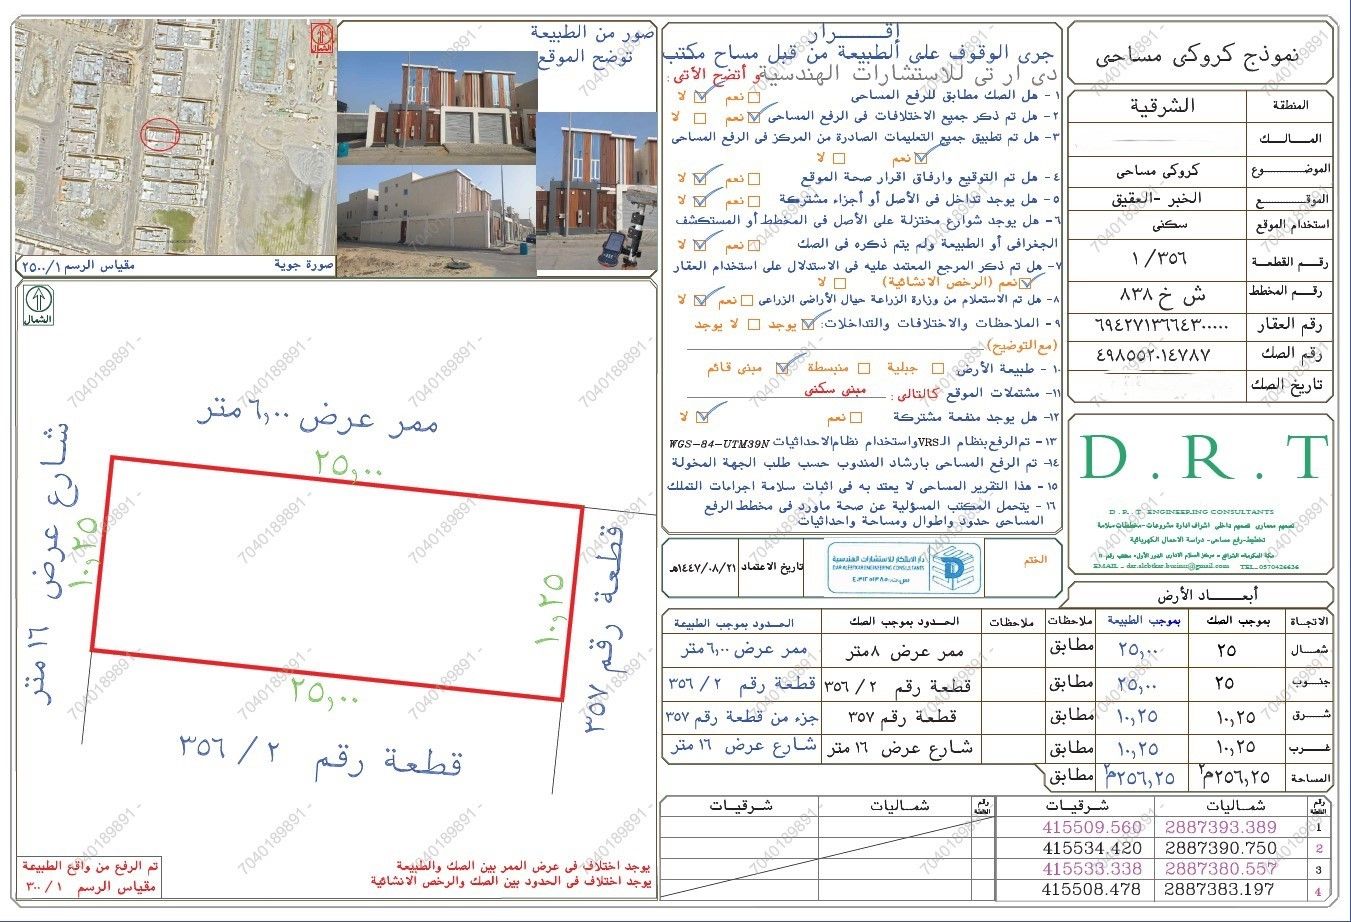 نموذج كروكى مساحى
المنطقة الشرقية
المـــالــــك
الموضــــــوع كروكى مساحى
الموقــــــع الخبر -العقيق
استخدام الموقع سكنى
رقـم القطعـة ١/٣٥٦
رقــم المخطط ش خ ٨٣٨
رقم العقار ٦٩٤٢٧١٣٦٦٤٣٠٠٠٠٠
رقم الصك ٤٩٨٥٥٢٠١٤٧٨٧
تاريخ الصك
D . R . T
D . R . T ENGINEERING CONSULTANTS
تصميم معمارى تصميم داخلى اشراف ادارة مشروعات-مخططات سلامة
تخطيط-رفع مساحى- دراسة الاحمال الكهربائية
EMAIL - dar.alebtkar.businss@gmail.com TEL-0570426626
إقـــــــرار
جرى الوقوف على الطبيعة من قبل مساح مكتب
دى ار تى للاستشارات الهندسية و أتضح الأتى :
١- هل الصك مطابق للرفع المساحى
نعم لا
٢- هل تم ذكر جميع الاختلافات فى الرفع المساحى نعم لا
٣- هل تم تطبيق جميع التعليمات الصادرة من المركز فى الرفع المساحى
نعم لا
٤- هل تم التوقيع وارفاق اقرار صحة الموقع نعم لا
٥- هل يوجد تداخل فى الأصل أو أجزاء مشتركة نعم لا
٦- هل يوجد شوارع مختزلة على الأصل فى المخطط أو المستكشف
الجغرافى أو الطبيعة ولم يتم ذكره فى الصك نعم لا
٧- هل تم ذكر المرجع المعتمد عليه فى الاستدلال على استخدام العقار
نعم (الرخص الانشائية) لا
٨- هل تم الاستعلام من وزارة الزراعة حيال الأراضى الزراعى نعم لا
٩- الملاحظات والاختلافات والتداخلات: يوجد لا يوجد
(مع التوضيح)
١٠- طبيعة الأرض جبلية منبسطة مبنى قائم
١١- مشتملات الموقع كالتالى : مبنى سكنى
١٢- هل يوجد منفعة مشتركة نعم لا
١٣- تم الرفع بنظام الـVRS واستخدام نظام الاحداثيات WGS-84-UTM39N
١٤- تم الرفع المساحى بارشاد المندوب حسب طلب الجهة المخولة
١٥- هذا التقرير المساحى لا يعتد به فى اثبات سلامة اجراءات التملك
١٦- يتحمل المكتب المسؤلية عن صحة ماورد فى مخطط الرفع
المساحى حدود واطوال ومساحة واحداثيات
الختم
دار الابتكار للاستشارات الهندسية
DAR ALEBTKAR ENGINEERING CONSULTANTS
تاريخ الاعتماد ١٤٤٧/٠٨/٢١هـ
أبعـــاد الأرض
الاتجاة بموجب الصك بموجب الطبيعة ملاحظات ملاحظات الحدود بموجب الصك الحدود بموجب الطبيعة
شمـــال ٢٥ ٢٥,٠٠ مطابق ممر عرض ٨متر ممر عرض ٦,٠٠متر
جنــوب ٢٥ ٢٥,٠٠ مطابق قطعة رقم ٢ / ٣٥٦ قطعة رقم ٢ / ٣٥٦
شــرق ١٠,٢٥ ١٠,٢٥ مطابق قطعة رقم ٣٥٧ جزء من قطعة رقم ٣٥٧
غــرب ١٠,٢٥ ١٠,٢٥ مطابق شارع عرض ١٦ متر شارع عرض ١٦ متر
المساحة ٢٥٦,٢٥م٢ ٢٥٦,٢٥م٢ مطابق
رقم النقطة شماليات شرقيات
1 2887393.389 415509.560
2 2887390.750 415534.420
3 2887380.557 415533.338
4 2887383.197 415508.478
رقم النقطة شماليات شرقيات
صور من الطبيعة
توضح الموقع
الشمال
صورة جوية مقياس الرسم ٢٥٠٠/١
الشمال
ممر عرض ٦,٠٠ متر
٢٥,٠٠
شارع عرض ١٦ متر
١٠,٢٥
١٠,٢٥
قطعة رقم ٣٥٧
٢٥,٠٠
قطعة رقم ٢ / ٣٥٦
يوجد اختلاف فى عرض الممر بين الصك والطبيعة
يوجد اختلاف فى الحدود بين الصك والرخص الانشائية
تم الرفع من واقع الطبيعة
مقياس الرسم ٣٠٠/١
7040189891 -